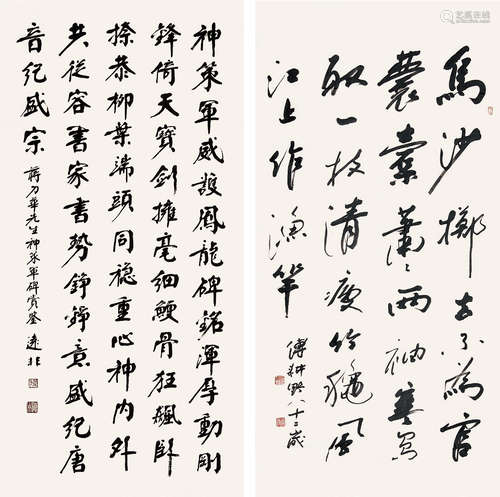 烏紗擲去不為官
囊橐蕭蕭兩袖寒寫
取一枝清瘦竹秋風
江上作漁竿
傅耕野八十三歲
神策軍威護鳳龍碑銘渾厚動剛
鋒倚天寶劍擁毫細鯁骨狂飆卧
恭柳葉濡頭同穩重心神內外
共從容書家書勢錚錚意盛紀唐
音紀盛宗
蔣力華先生神策軍碑賞鑒